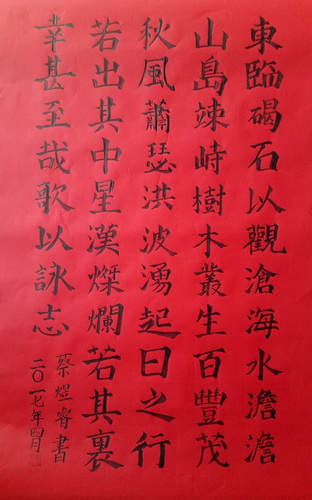 東臨碣石以觀滄海水澹澹
山島竦峙樹木叢生百豐茂
秋風蕭瑟洪波湧起日之行
若出其中星漢燦爛若其裏
幸甚至哉歌以詠志
蔡煜睿書
二〇一七年四月